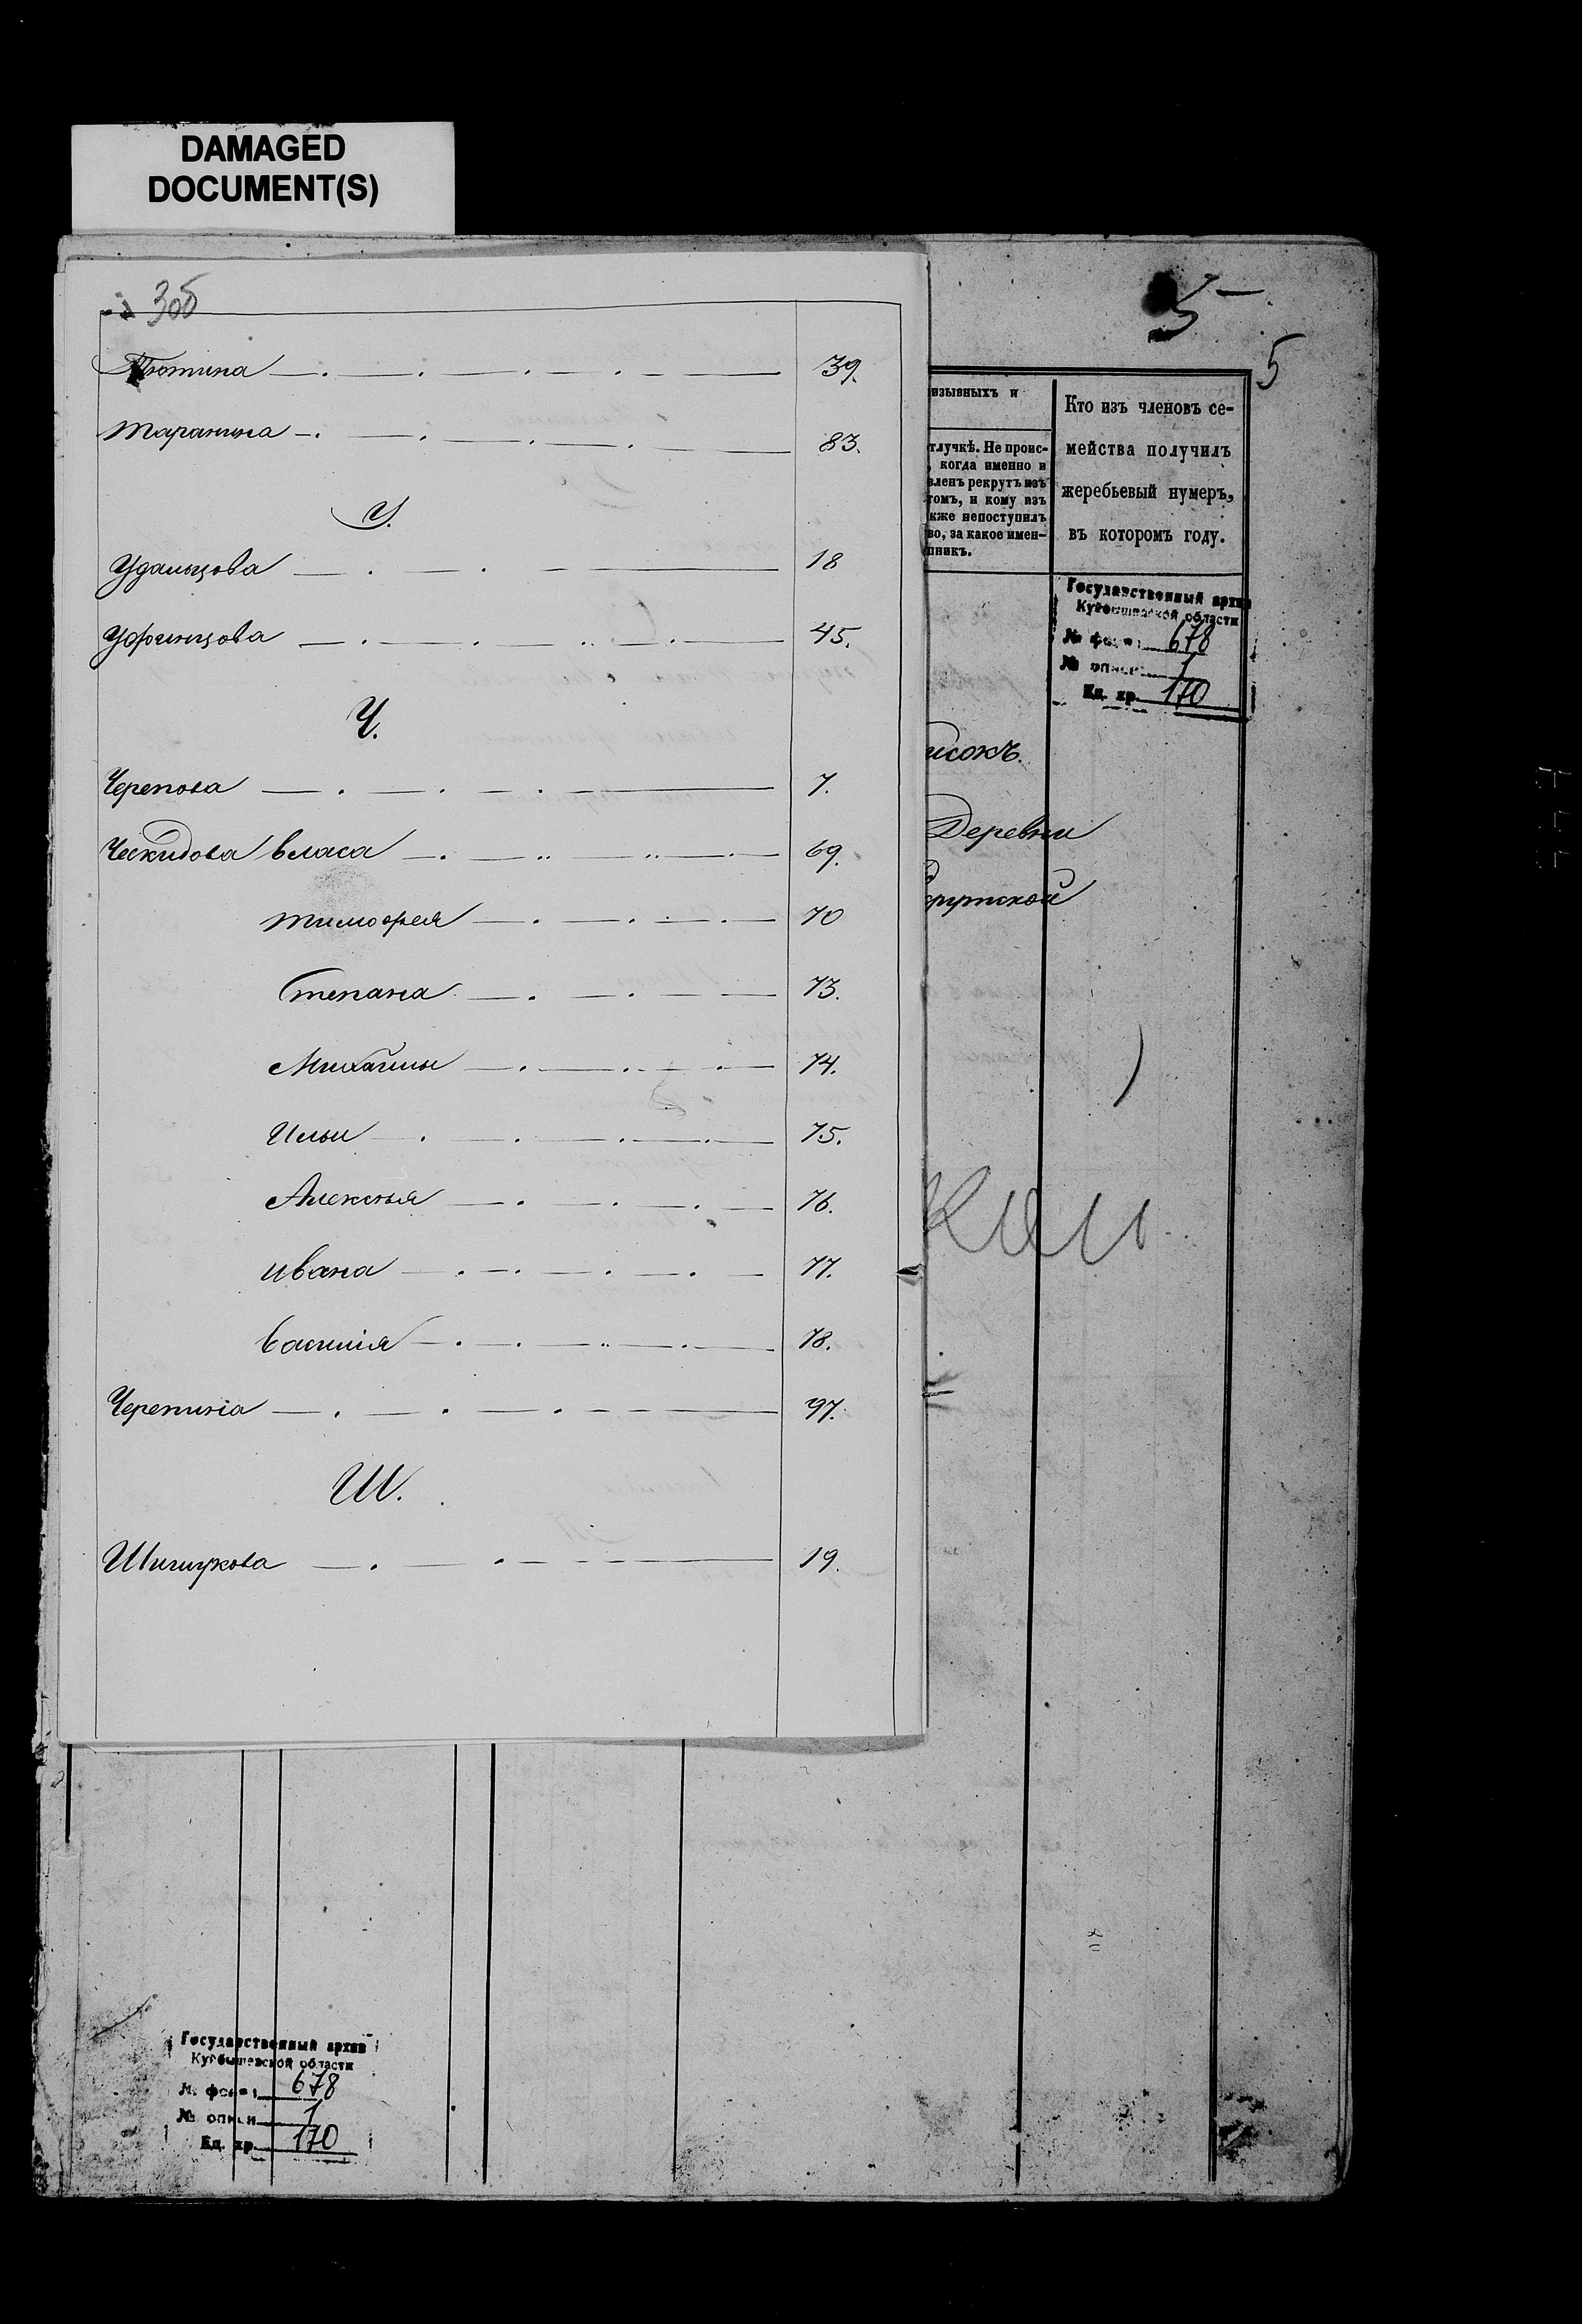 DAMAGED
DOCUMENT(S)
3об
Тютина 39.
Таранина 83.
У.
Удальцова 18
Уфимцова 45.
Ч.
Черепова 7.
Ческидова Власа 69.
Тимофея 70
Степана 73.
Михайлы 74.
Ильи 75.
Алексѣя 76.
Ивана 77.
Василія 78.
Черепина 97.
Ш.
Шишукова 19.
5
5
изывныхъ и
тлучкѣ. Не проис-
, когда именно и
вленъ рекрутъ изъ
томъ, и кому изъ
кже непоступилъ
во, за какое имен-
пникъ.
Кто изъ членовъ се-
мейства получилъ
жеребьевый нумеръ,
въ которомъ году.
Государственный архив
Куйбышевской области
№ фонда 678
№ описи 1
Ед. хр. 170
исокъ.
Деревни
крутской
Государственный архив
Куйбышевской области
№ фонда 678
№ описи 1
Ед. хр. 170